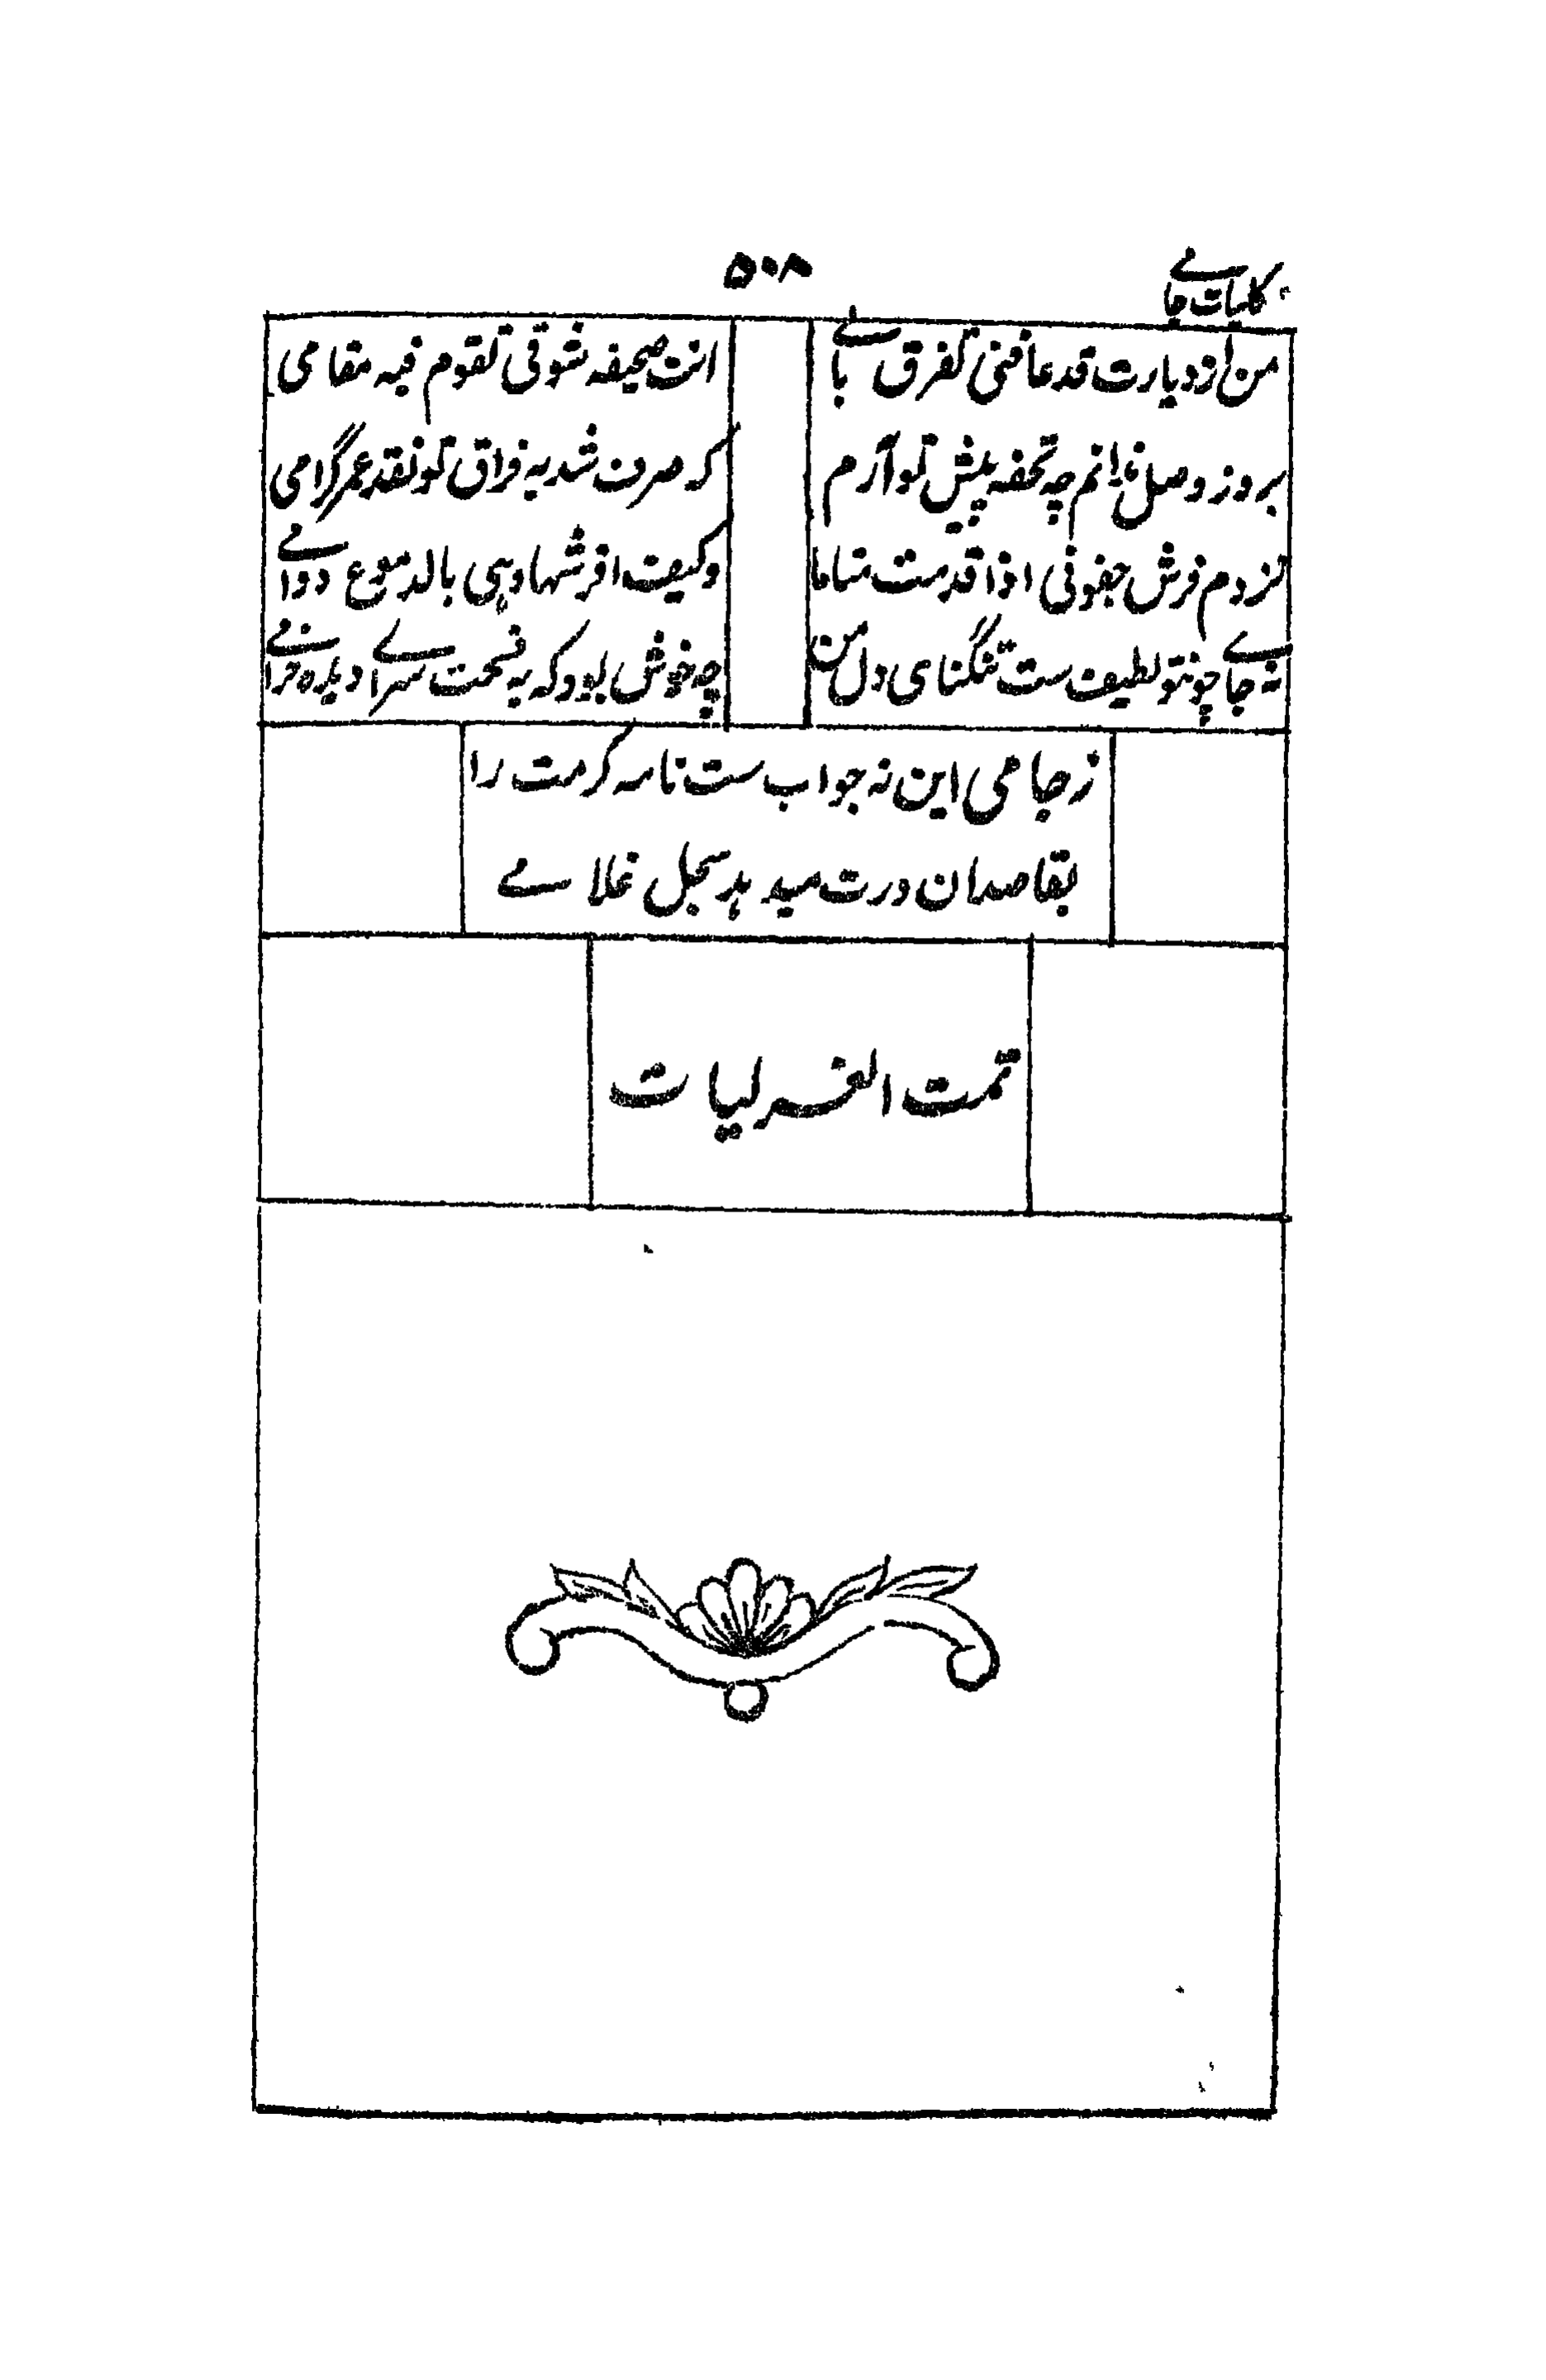 کلیات جامی
۵۰۸
من ازدیارت قد عافنی تفرق بالی
انت صحیفه شوقی تقوم فیه مقامی
بروز وصل ندانم چه تحفه پیش تو آرم
که صرف شد به فراق تو نقد عمر گرامی
قدمت
وکیف افرشها وہی بالدموع دوامی
نه جای چونتو لطیف ست تنگنای دل من
چه خوش بود که به فسحت سرای دیده خرامی
ز جامی این نه جواب ست نامه کرمت را
بقاصدان درت میدہد سجل غلامی
تمت الغزلیات